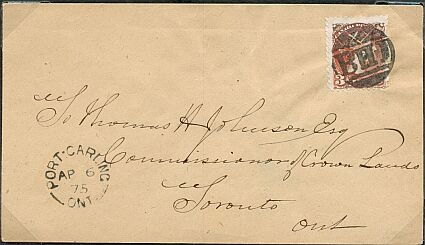 To Thomas H Johnson Esq
Commissioner of Crown Lands
Toronto
Ont
PORT·CARLING
AP 6
75
ONT